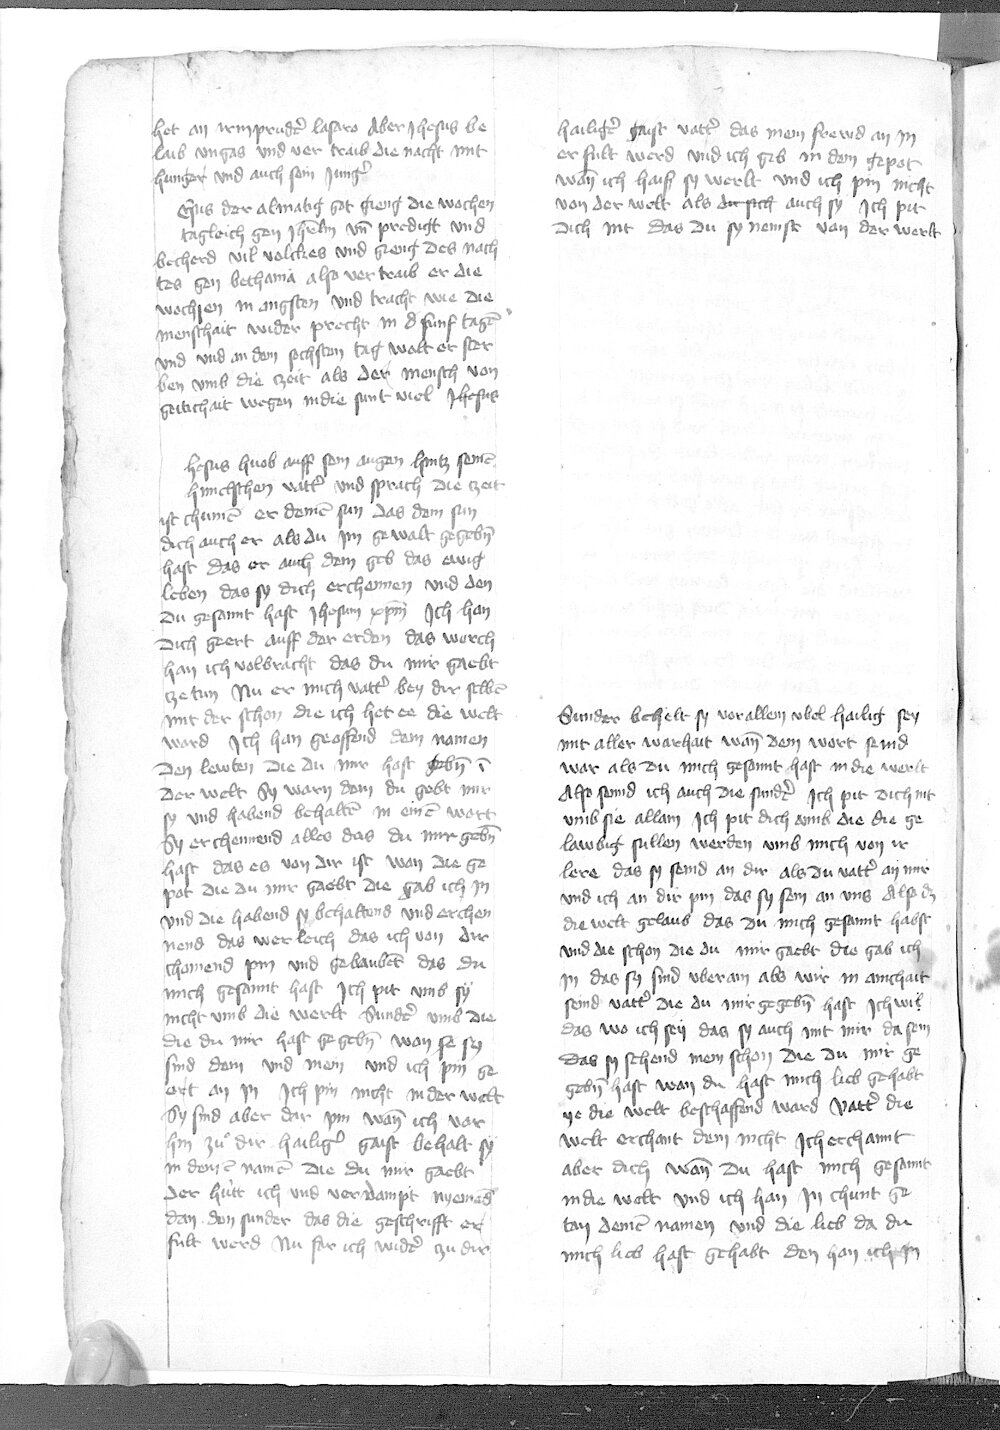 het an irm prudẽ lasaro Aber Jhesus be
laib ungas und ver traib die nacht mit
hunger und auch sein Junger
Esus der almätig got gieng die wochen
tagleich gen Jhrlm vñ predigtt und
becherd vil volckes und gieng des nach
tes gen bethania also ver traib er die
wochen in angsten und tracht wie die
menschait wider precht in d funf tagẽ
und und an dem sechsten tag wolt er ster
ben umb die czeit als der mensch von
geitichait wegen in die sunt viel Jhesus
hesus huob auff sein augen hintz seinẽ
himelschen vatter und sprach die czeit
ist chumẽ er deinẽ sun das dein sun
dich auch er als du im gewalt gegebñ
hast das er auch dem geb das ewig
leben das sy dich erchennen und den
du gesannt hast Jhesum xpm Ich han
dich geert auff der erden das werch
han ich volbracht das du mir gaebt
cze tun Nu er mich vatter bey dir selbẽ
mit der schon die ich het ee die welt
ward Ich han geoffend dein namen
den lewten die du mir hast gebñ ĩ
der welt Sy warn dein du gebt mir
sy und habend behaltẽ in einẽ wort
Sy erchennend alles das du mir gebñ
hast das es von dir ist wan die ge
pot die du mir gaebt die gab ich in
und die habend sy behaltend und erchen
nend das werleich das ich von dir
chomend pin und gelaubẽt das du
mich gesannt hast Ich pit umb sy
nicht umb die werlt Sunder umb die
die du mir hast gegebñ wan se sy
sind dein und mein und ich pin ge
ert an in Ich pin nicht in der welt
Sy sind aber dar pin wañ ich var
hin zu dir hailiger gaist behalt sy
in deinẽ namẽ die du mir gaebt
der hütt ich und verdampt nyemẽd
dan den sunder das die geschrifft er
fult werd Nu far ich wider czu dir
hailiger gaist vatter das mein frewd an in
erfult werd und ich geb in dein gepot
wañ ich haiss sy werlt und ich pin nicht
von der welt als auch sy Ich pit
dich nit das du sy nemst von der werlt
Sunder behelt sy vor allem ubel hailig sey
mit aller warhait wañ dein wort seind
war als du mich gesannt hast in die werlt
Also seind ich auch die sunder Ich pit dich nit
umb sie allain Ich pit dich umb die die ge
lawbig sullen werden umb mich von ir
lere das sy seind an dir als du vatter an mir
und ich an dir pin das sy sein an uns Also dz
die welt gelaub das du mich gesannt habst
und die schon die du mir gaebt die gab ich
in das sy sind uberain als wir in ainchait
seind vatter die du mir gegebñ hast Ich wil
das wo ich sey das sy auch mit mir da sein
das sy sehend mein schon die du mir ge
gebñ hast wan du hast mich lieb gehabt
ye die welt beschaffend ward Vatter die
welt erchant dein nicht Ich erchannt
aber dich wañ du hast mich gesannt
in die welt und ich han in chunt ge
tan deinẽ namen und die lieb da du
mich lieb hast gehabt den han ich in